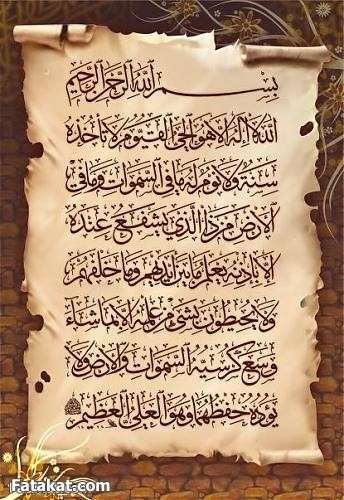 بسم الله الرحمن الرحيم
الله لا إله إلا هو الحي القيوم لا تأخذه
سنة ولا نوم له ما في السموات وما في
الأرض من ذا الذي يشفع عنده
إلا بإذنه يعلم ما بين أيديهم وما خلفهم
ولا يحيطون بشيء من علمه إلا بما شاء
وسع كرسيه السموات والأرض ولا
يؤوده حفظهما وهو العلي العظيم
Fatakat.com